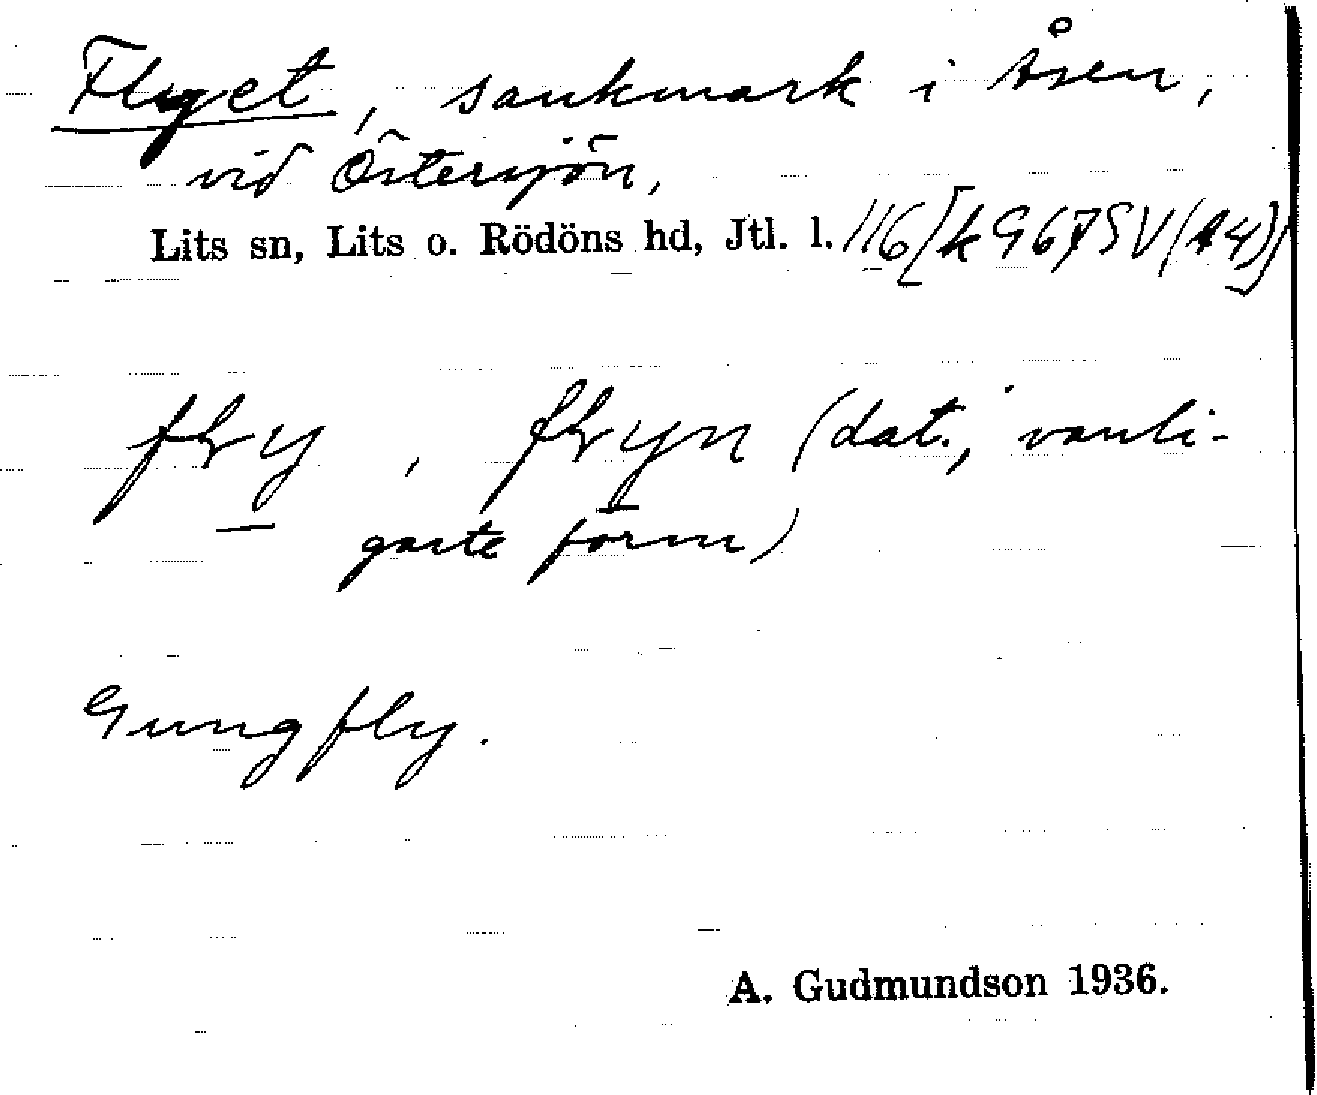 Flyet, sankmark i Åsen,
vid Östersjön,
Lits sn, Lits o. Rödöns hd, Jtl. l. 116[k 967SV(A4)]
fly, flyn (dat., vanli-
gaste form)
Gungfly.
A. Gudmundson 1936.